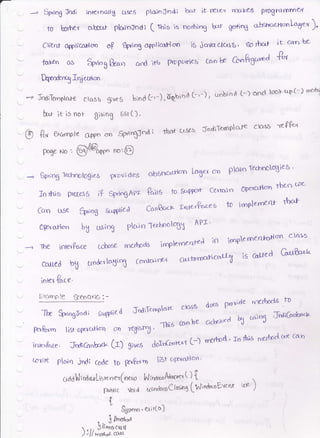 → Spring Jndi internally uses plain Jndi but it never makes programmer
to bother about plain Jndi ( This is nothing but getting abstraction layer ).
Client application of Spring application is Jonte class. So that it can be
taken as Spring Bean and its properties can be Configured for
Dependency Injection.
→ JndiTemplate class gives bind(-,-), rebind(-,-), unbind(-) and look up(-) meth
but it is not giving list().
For example appn on Spring Jndi that uses JndiTemplate class reffer
page No: appn no:
→ Spring Technologies provides abstraction layer on plain Technologies.
In this process if Spring API fails to support Certain operation then we
Can use Spring supplied CallBack Interfaces to implement that
operation by using plain Technology API.
→ The interface whose methods implemented in implementation class
called by underlaying container automatically is called CallBack
interface.
Example Scenario :-
The Spring Jndi supplied JndiTemplate class does provide methods to
perform list operation on registry. This can be achieved by using JndiCallback
interface. JndiCallback (I) gives doInContext (-) method. In this method we can
write plain Jndi code to perform list operation.
addWindowListener(new WindowAdapter() {
public void windowClosing (WindowEvent we)
{
System.exit(0)
} // method
} // inner class
); // method call